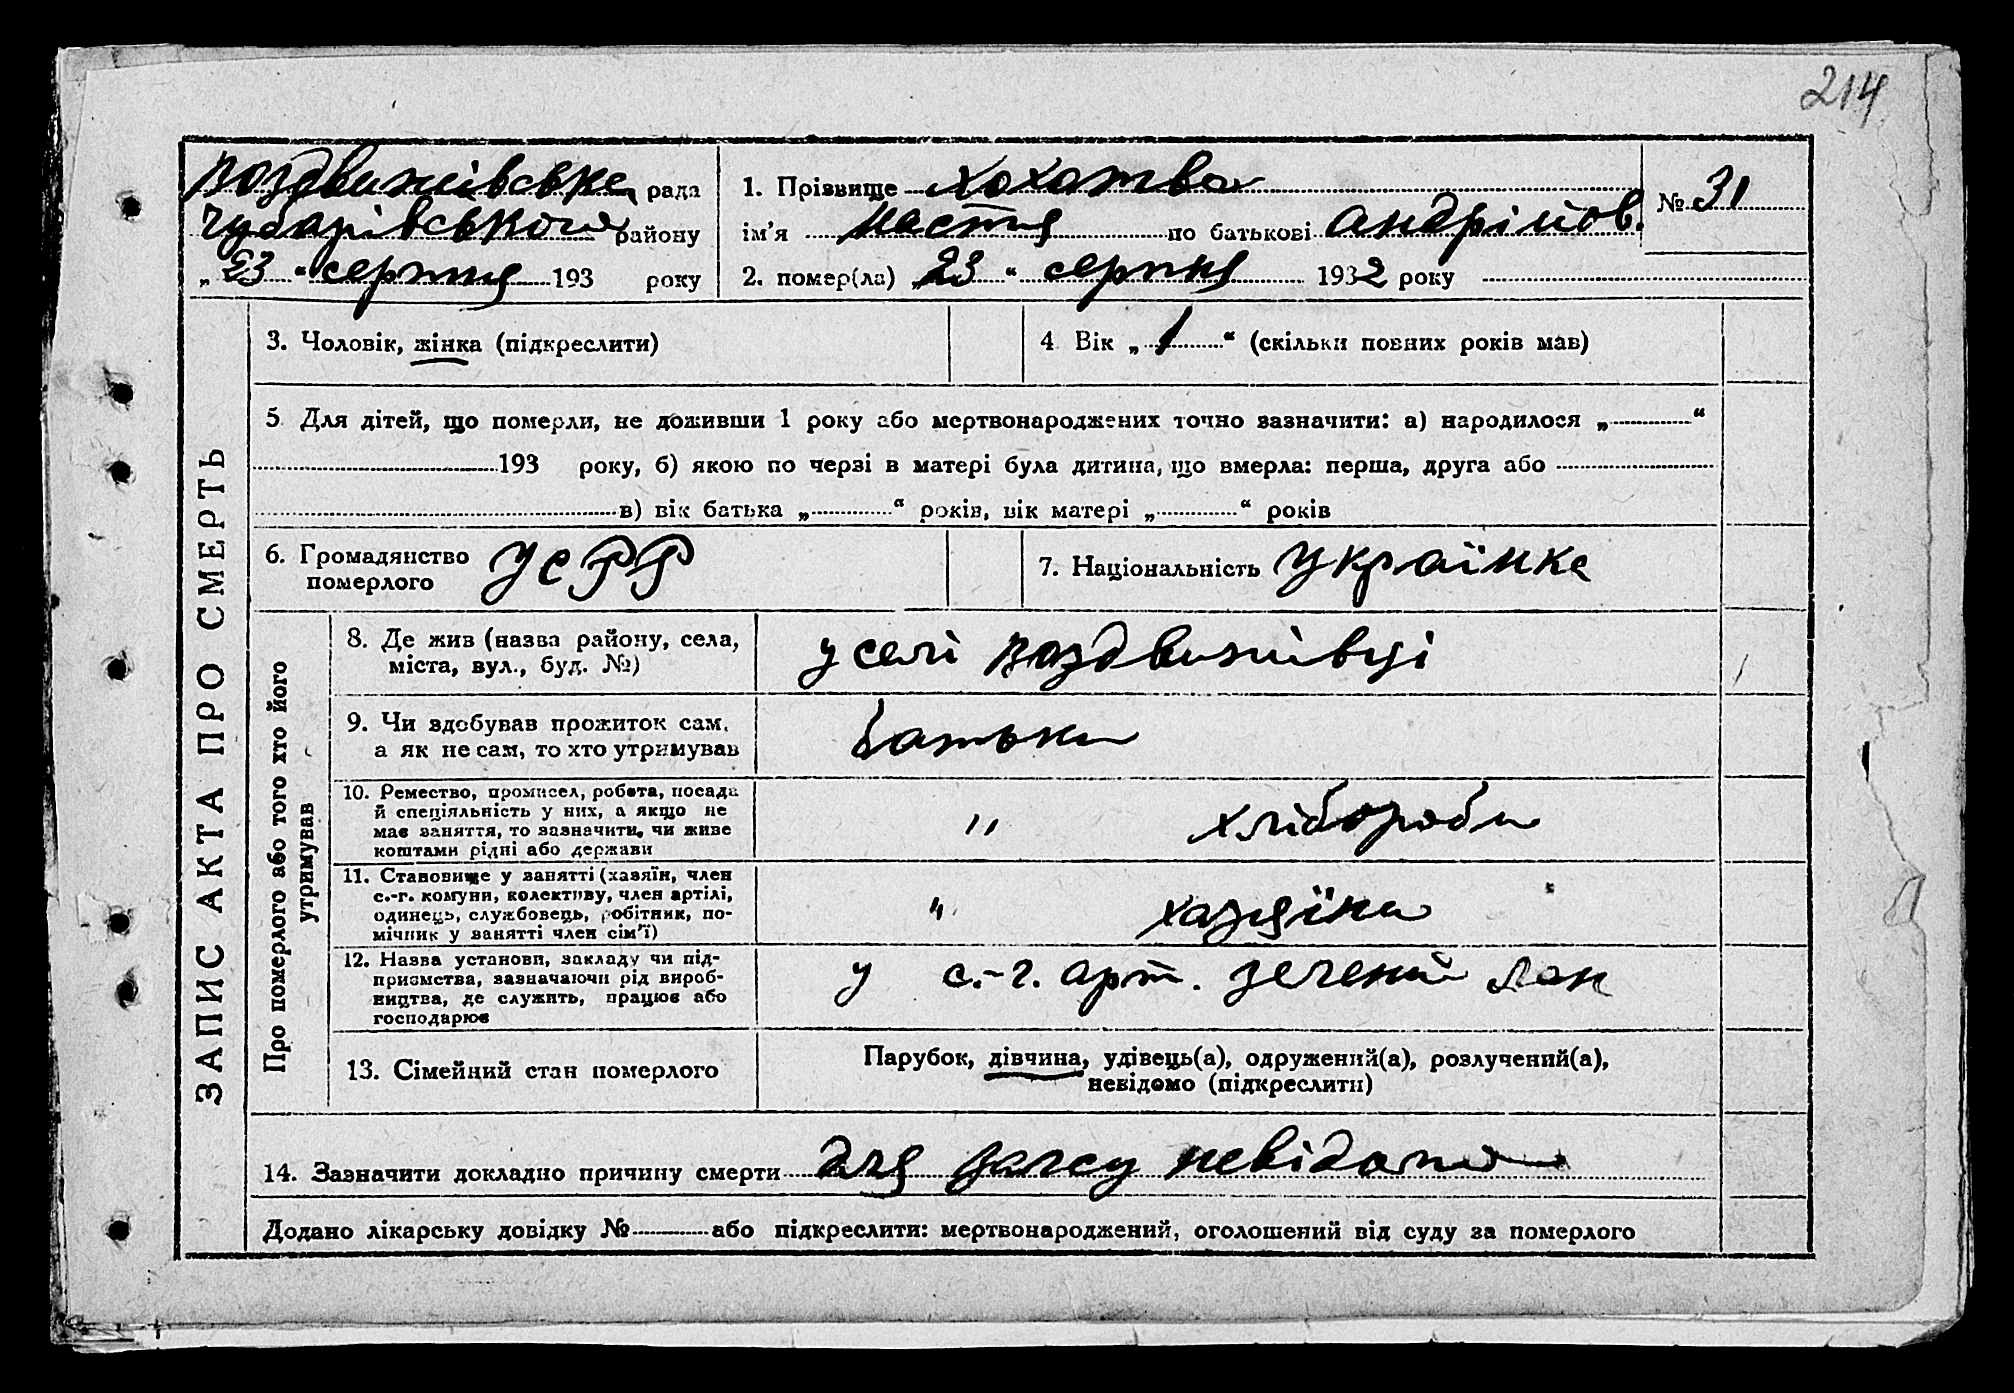 214
Воздвижівська рада
Чубарівського району
„ 23 " серпня 193 року
1. Прізвище Хохотва
ім'я Настя по батькові Андрійов.
№ 31
2. помер(ла) „ 23 " серпня 1932 року
ЗАПИС АКТА ПРО СМЕРТЬ
3. Чоловік, жінка (підкреслити)
4 Вік „ 1 " (скільки повних років мав)
5 Для дітей, що померли, не доживши 1 року або мертвонароджених точно зазначити: а) народилося „ "
193 року, б) якою по черзі в матері була дитина, що вмерла: перша, друга або
в) вік батька „ " років, вік матері „ " років
6. Громадянство
померлого
УСРР
7. Національність Українка
Про померлого або того хто його
утримував
8. Де жив (назва району, села,
міста, вул., буд. №)
у селі Воздвижівці
9. Чи здобував прожиток сам,
а як не сам, то хто утримував
батьки
10. Ремество, промисел, робота, посада
й спеціяльність у них, а якщо не
має заняття, то зазначити, чи живе
коштами рідні або держави
" хлібороби
11. Становище у занятті (хазяїн, член
с.-г. комуни, колективу, член артілі,
одинець, службовець, робітник, по-
мічник у занятті член сім'ї)
" хазяїни
12. Назва установи, закладу чи під-
приємства, зазначаючи рід вироб-
ництва, де служить, працює або
господарює
у с.-г. арт. зелений лан
13. Сімейний стан померлого
Парубок, дівчина, удівець(а), одружений(а), розлучений(а),
невідомо (підкреслити)
14. Зазначити докладно причину смерти для загсу невідома
Додано лікарську довідку № або підкреслити: мертвонароджений, оголошений від суду за померлого